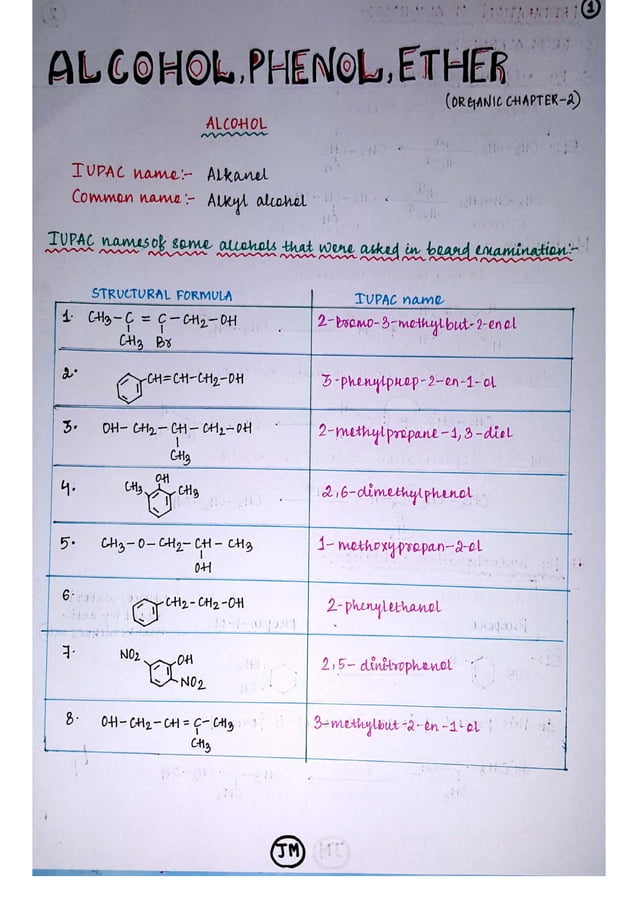 1
ALCOHOL, PHENOL, ETHER
(ORGANIC CHAPTER-2)
ALCOHOL
IUPAC name:- Alkanol
Common name:- Alkyl alcohol
IUPAC names of some alcohols that were asked in board examination:-
STRUCTURAL FORMULA IUPAC name
1. CH3-C = C-CH2-OH 2-bromo-3-methylbut-2-enol
CH3 Br
2. CH=CH-CH2-OH 3-phenylprop-2-en-1-ol
3. OH-CH2-CH-CH2-OH 2-methylpropane-1,3-diol
CH3
4. CH3 OH CH3 2,6-dimethylphenol
5. CH3-O-CH2-CH-CH3 1-methoxypropan-2-ol
OH
6. CH2-CH2-OH 2-phenylethanol
7. NO2 OH 2,5-dinitrophenol
NO2
8. OH-CH2-CH=C-CH3 3-methylbut-2-en-1-ol
CH3
JM